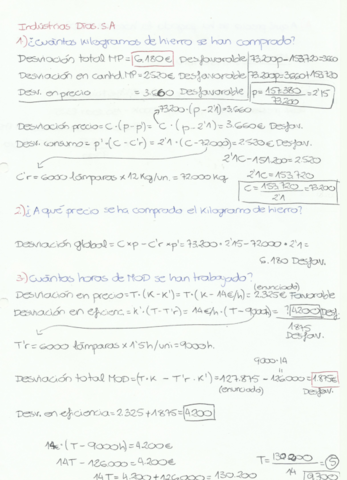 Industrias Dos. S.A
1) ¿Cuántos kilogramos de hierro se han comprado?
Desviación total MP = 6.180€ Desfavorable 73.200p = 153720 + 3660
Desviación en cantd. MP = 2520€ Desfavorable 73.200p = 3660 + 153720
Desv. en precio = 3.660 Desfavorable p = 157.380 / 73.200 = 2'15
73200 · (p - 2'1) = 3.660
Desviación precio = C · (p - p') = C · (p - 2'1) = 3.660€ Desfav.
Desv. consumo = p' · (C - C'r) = 2'1 · (C - 72000) = 2.520€ Desfav.
2'1C - 151.200 = 2.520
C'r = 6000 lámparas x 12 Kg/un. = 72000 Kg 2'1C = 153.720
C = 153.720 / 2'1 = 73.200
2) ¿A qué precio se ha comprado el kilogramo de hierro?
Desviación global = C x p - C'r x p' = 73.200 · 2'15 - 72000 · 2'1 =
6.180 Desfav.
3) Cuántas horas de MOD se han trabajado?
(enunciado)
Desviación en precio = T · (K - K') = T · (K - 14€/h) = 2.325€ Favorable
Desviación en eficienc = K' · (T - T'r) = 14€/h · (T - 9000h) = ? 4200 Desf
1875
Desfav.
T'r = 6000 lámparas x 1'5h/uni = 9000h.
9000 · 14
Desviación total MOD = (T · K - T'r · K') = 127.875 - 126000 = 1.875€
(enunciado) Desfav.
Desv. en eficiencia = 2.325 + 1875 = 4.200
14€ · (T - 9.000h) = 4.200€
14T - 126000 = 4.200€ T = 130.200 / 14 =
14T = 4.200 + 126000 = 130.200 9.300